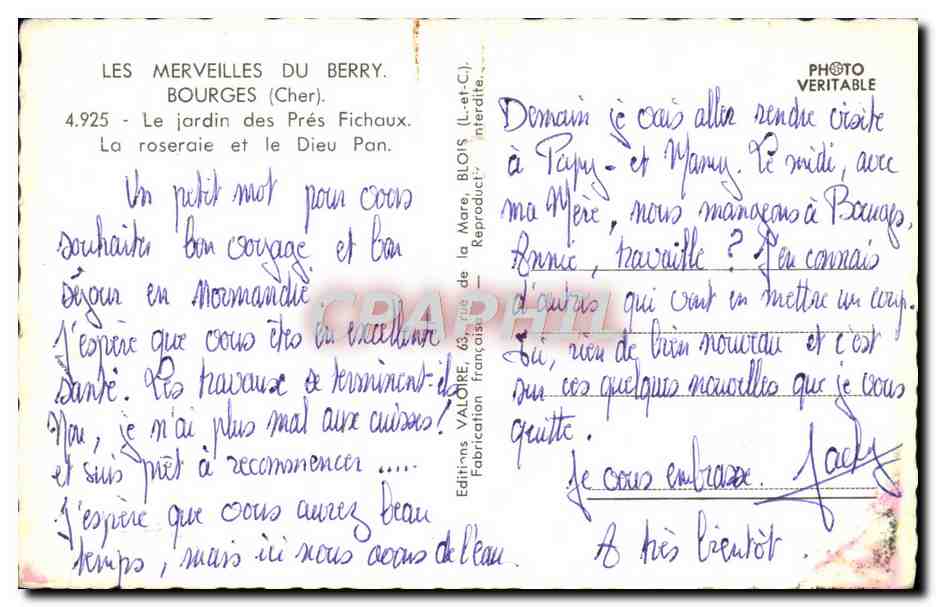 LES MERVEILLES DU BERRY.
BOURGES (Cher).
4.925 - Le jardin des Prés Fichaux.
La roseraie et le Dieu Pan.
Un petit mot pour vous
souhaiter bon voyage et bon
séjour en Normandie
J'espère que vous êtes en excellente
santé. Les travaux se terminent-ils
Non, je n'ai plus mal aux cuisses!
et suis prêt à recommencer .....
J'espère que vous aurez beau
temps, mais ici nous avons de l'eau.
Editions VALOIRE, 63, rue de la Mare, BLOIS (L.-et-C.).
Fabrication française — Reproduct. interdite.
CPAPHIL
PHOTO
VERITABLE
Demain je vais aller rendre visite
à Papy- et Mamy. Le midi, avec
ma Mère, nous mangeons à Bourges,
Annie, travaille? J'en connais
d'autres qui vont en mettre un coup.
Ici, rien de bien nouveau et c'est
sur ces quelques nouvelles que je vous
quitte.
Je vous embrasse. Jacky
A très bientôt.